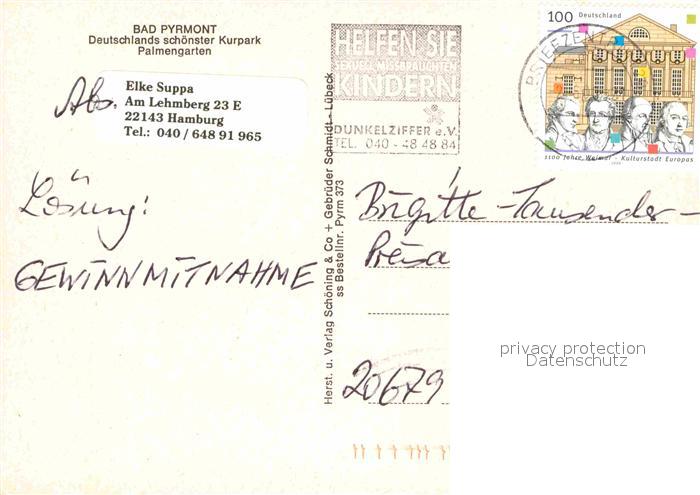 BAD PYRMONT
Deutschlands schönster Kurpark
Palmengarten
Abs.
Elke Suppa
Am Lehmberg 23 E
22143 Hamburg
Tel.: 040 / 648 91 965
Lösung:
GEWINNMITNAHME
Herst. u. Verlag Schöning & Co + Gebrüder Schmidt - Lübeck
ss Bestellnr. Pyrm 373
HELFEN SIE
SEXUELL MISSBRAUCHTEN
KINDERN
DUNKELZIFFER e.V.
TEL. 040 - 48 48 84
BRIEFZEN
100 Deutschland
1100 Jahre Weimar - Kulturstadt Europas
1999
Brigitte - Tausender -
Preisa
20679
privacy protection
Datenschutz